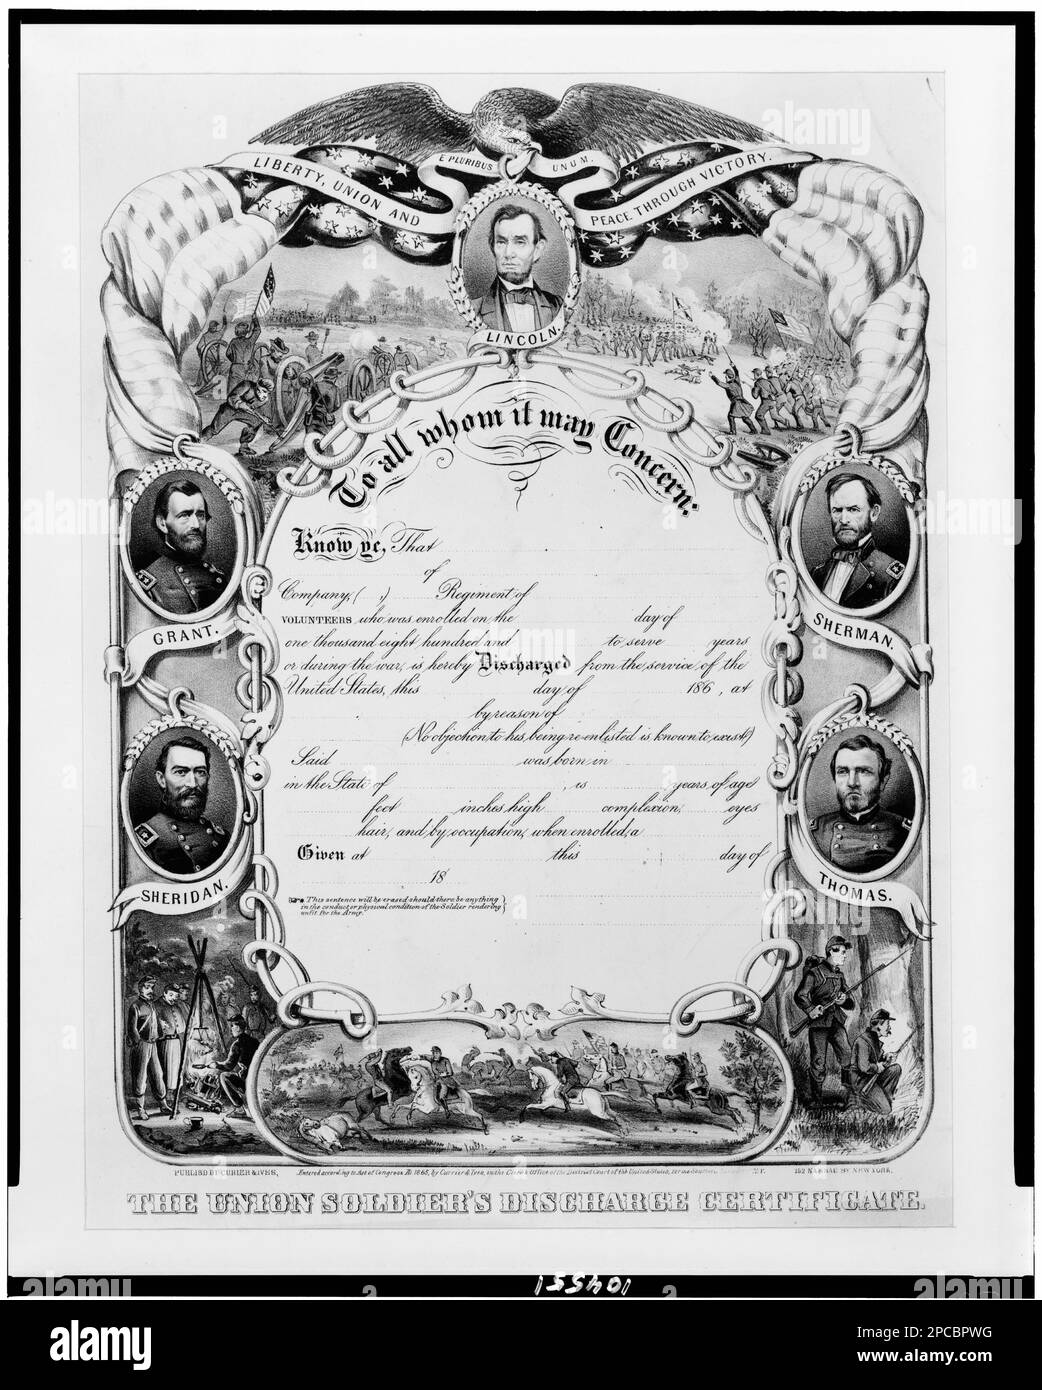 E PLURIBUS UNUM.
LIBERTY, UNION AND PEACE THROUGH VICTORY.
LINCOLN.
To all whom it may Concern:
GRANT.
SHERMAN.
SHERIDAN.
THOMAS.
Know ye, That
of
Company, ( ,) Regiment of
VOLUNTEERS who was enrolled on the day of
one thousand eight hundred and to serve years
or during the war, is hereby Discharged from the service of the
United States, this day of 186 , at
by reason of
(No objection to his being re-enlisted is known to exist.)
Said was born in
in the State of , is years of age
feet inches high complexion, eyes
hair, and by occupation, when enrolled, a
Given at this day of
18
This sentence will be erased should there be anything
in the conduct or physical condition of the Soldier rendering
unfit for the Army.
PUBLISD BY CURIER & IVES,
Entered according to Act of Congress AD 1865, by Currier & Ives, in the Clerk's Office of the District Court of the United States, for the Southern
152 NASSAU ST NEW YORK.
THE UNION SOLDIER'S DISCHARGE CERTIFICATE.
104551
alamy
Image ID: 2PCBPWG
www.alamy.com